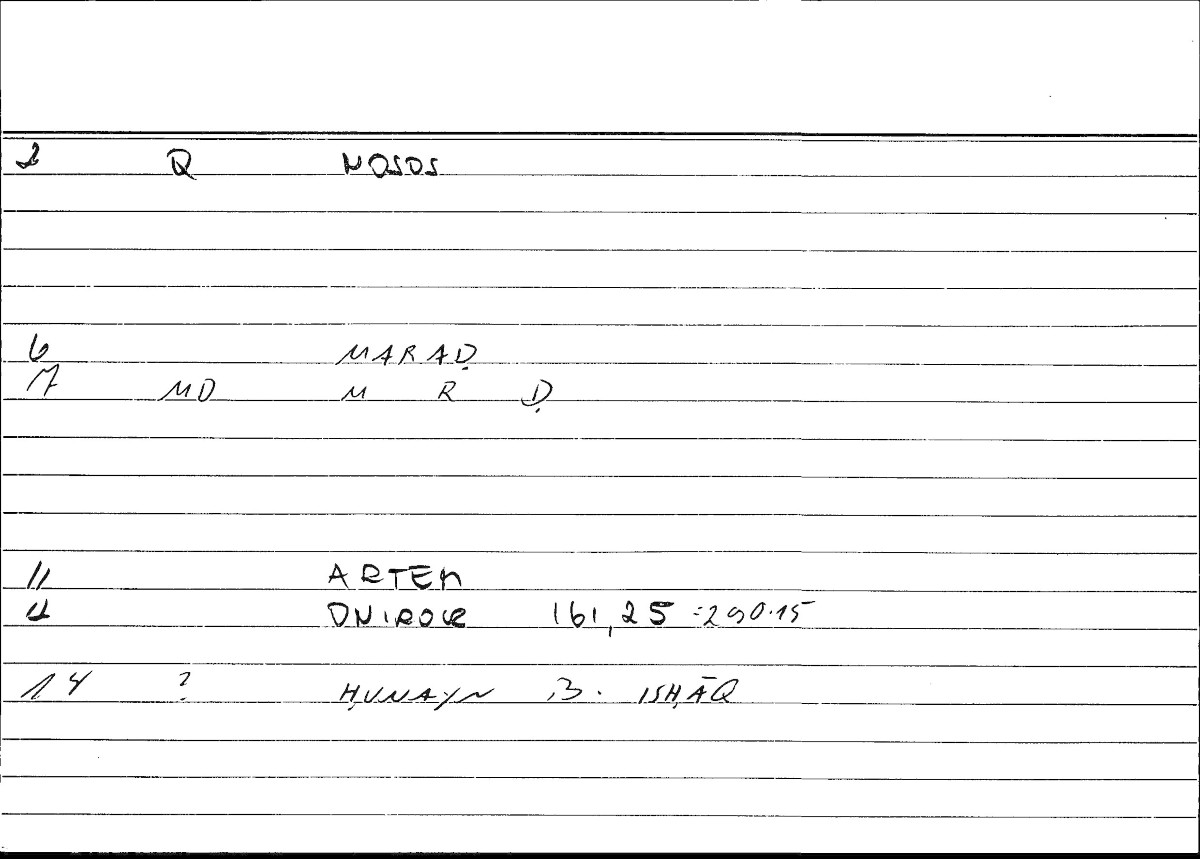 2 Q NOSOS
6 MARAḌ
7 MD M R Ḍ
11 ARTEM
12 ONIROCR 161,25 = 290.15
14 ? ḤUNAYN B. ISḤĀQ